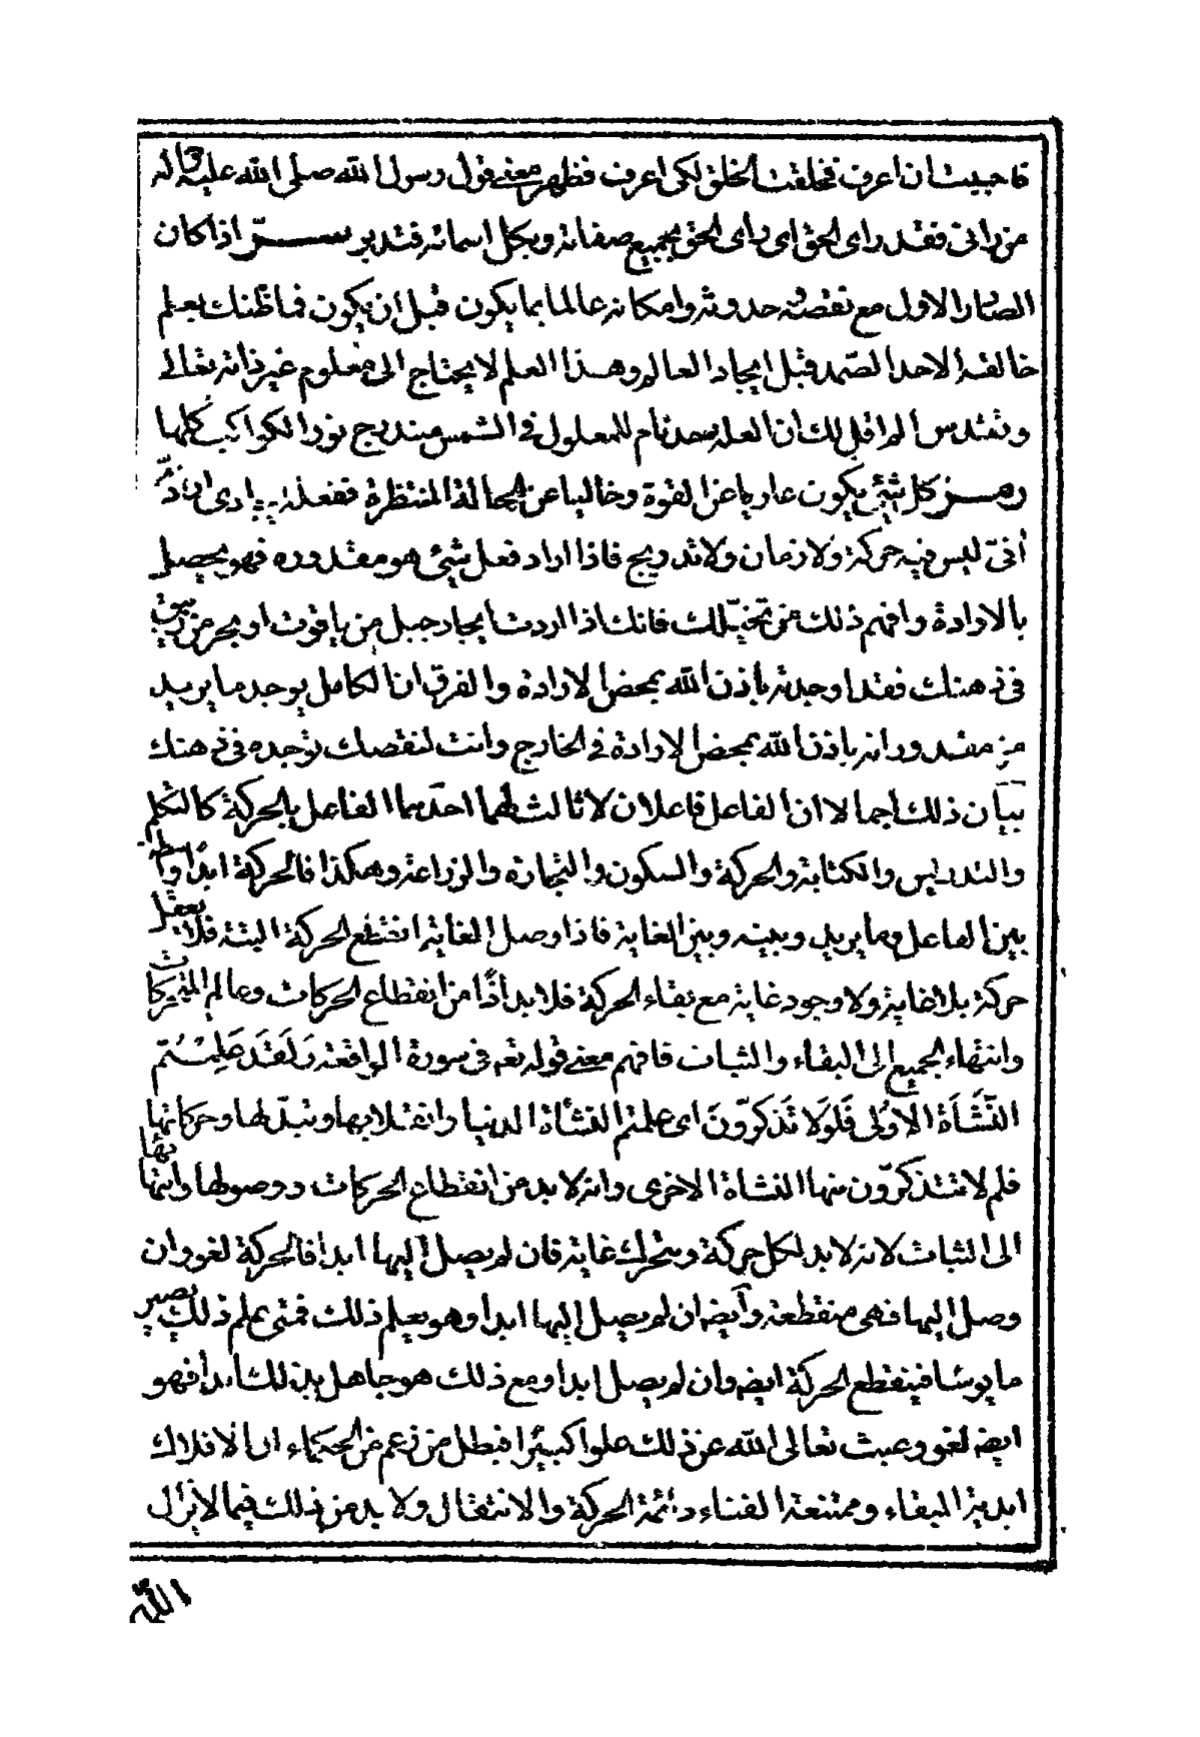 فاحببت ان اعرف فخلقت الخلق لكى اعرف فظهر معنى قول رسول الله صلى الله عليه واله
من رانى فقد راى الحق اى راى الحق بجميع صفاته وبكل اسمائه فتدبر سرّ اذا كان
الصادر الاول مع نقصه وحدوثه وامكانه عالما بما يكون قبل ان يكون فما ظنك بعلم
خالقه الاحد الصمد قبل ايجاد العالم وهذا العلم لا يحتاج الى معلوم غير ذاته تعالى
وتقدس الم اقل لك ان العله حد تام للمعلول فى الشمس مندرج نور الكواكب كلها
رمز كل شيئ يكون عاريا عن القوة وخاليا عن الحالة المنتظرة ففعله
أنىّ ليس فيه حركة ولا زمان ولا تدريج فاذا اراد فعل شيئ هو مقدوره فهو يحصل
بالارادة وافهم ذلك من تخيّلك فانك اذا اردت ايجاد جبل من ياقوت او بحر من زيبق
فى ذهنك فقد اوجدته باذن الله بمحض الارادة والفرق ان الكامل يوجد ما يريد
من مقدوراته باذن الله بمحض الارادة فى الخارج وانت لنقصك توجده فى ذهنك
بيان ذلك اجمالا ان الفاعل فاعلان لا ثالث لهما احدهما الفاعل بالحركة كالتكلم
والتدريس والكتابة والحركة والسكون والتجارة والزراعة وهكذا فالحركة ابدا واسطة
بين الفاعل وما يريد وبينه وبين الغاية فاذا وصل الغاية انقطع الحركة البتة فلا يعقل
حركة بلا غاية ولا وجود غاية مع بقاء الحركة فلا بد اذًا من انقطاع الحركات وعالم المتحركات
وانتهاء الجميع الى البقاء والثبات فافهم معنى قوله تعه فى سورة الواقعة وَلَقَدَ عَلِمْتُم
النَّشَاَةَ الاُولى فَلَولَا تَذكَرّونَ اى علمتم النشأة الدنيا وانقلابها وتبدّلها وحركاتها
فلم لا تتذكرّون منها النشاة الاخرى وانه لا بد من انقطاع الحركات ووصولها وانتهائها
الى الثبات لانه لا بد لكل حركة ومتحرك غاية فان لم يصل اليها ابدا فالحركة لغو وان
وصل اليها فهى منقطعة وايضه ان لم يصل اليها ابدا وهو يعلم ذلك فمتى علم ذلك يصير
مايوسا فينقطع الحركة ايضه وان لم يصل ابدا ومع ذلك هو جاهل بذلك ابدا فهو
ايضه لغو وعبث تعالى الله عن ذلك علوا كبيرًا فبطل من زعم من الحكماء ان الافلاك
ابدية البقاء وممتنعة الفناء دائمة الحركة والانتقال ولا بد من ذلك فيما لا يزال
الله